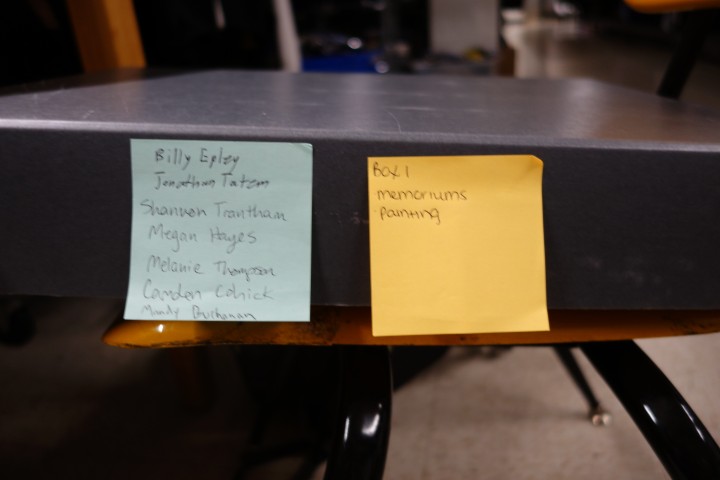 Billy Epley
Jonathan Tatom
Shannon Trantham
Megan Hayes
Melanie Thompson
Camden
Mandy Buchanan
Box 1
memoriums
painting